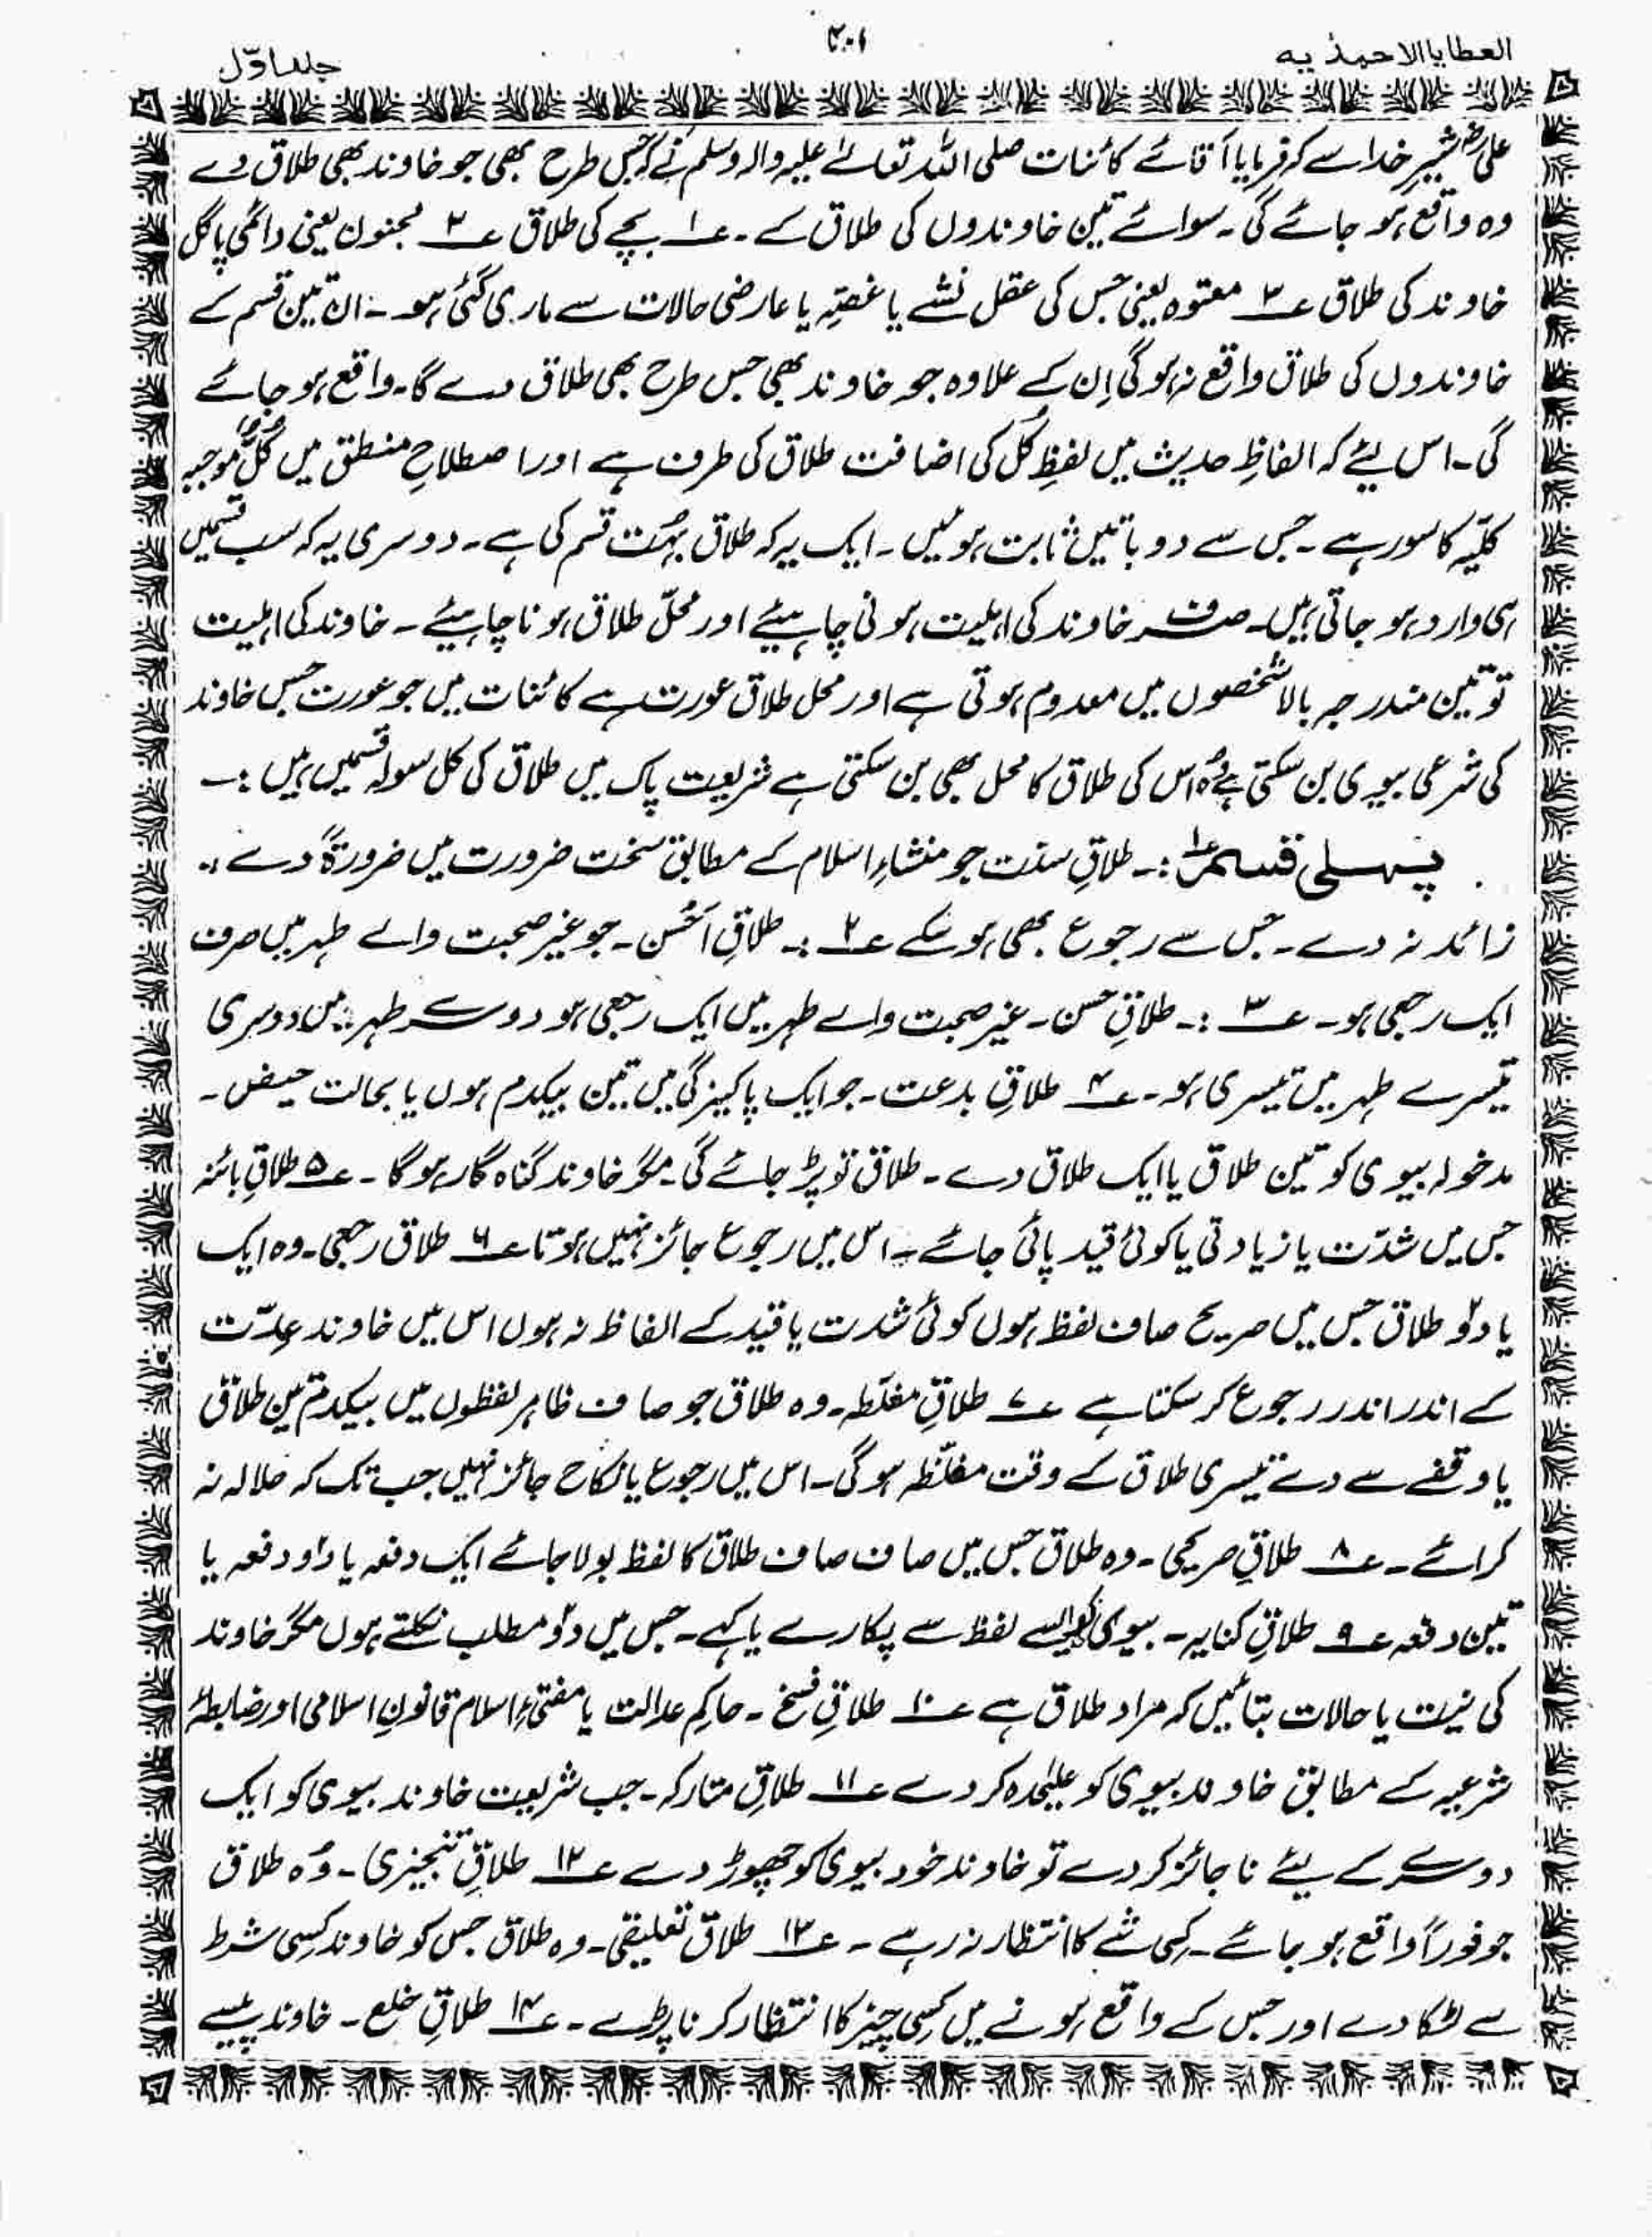 العطایا الاحمدیہ
۳۰۱
جلد اوّل
علیؓ شیرِ خدا سے کہ فرمایا آقائے کائنات صلی اللہ تعالےٰ علیہ والہ وسلم نے کہ جس طرح بھی جو خاوند بھی طلاق دے
وہ واقع ہو جائے گی۔ سوائے تین خاوندوں کی طلاق کے۔ ع۱ بچے کی طلاق ع۲ مجنون یعنی دائمی پاگل
خاوند کی طلاق ع۳ معتوہ یعنی جس کی عقل نشے یا غصّہ یا عارضی حالات سے ماری گئی ہو۔ ان تین قسم کے
خاوندوں کی طلاق واقع نہ ہو گی اِن کے علاوہ جو خاوند بھی جس طرح بھی طلاق دے گا۔ واقع ہو جائے
گی۔ اس لیئے کہ الفاظِ حدیث میں لفظِ کُل کی اضافت طلاق کی طرف ہے اور اصطلاحِ منطق میں کُلّ موجبہ
کلیّہ کا سور ہے۔ جس سے دو باتیں ثابت ہوئیں۔ ایک یہ کہ طلاق بہُت قسم کی ہے۔ دوسری یہ کہ سب قسمیں
ہی وارد ہو جاتی ہیں۔ صرف خاوند کی اہلیت ہونی چاہیئے اور محلّ طلاق ہونا چاہیئے۔ خاوند کی اہلیت
تو تین مندرجہ بالا شخصوں میں معدوم ہوتی ہے اور محل طلاق عورت ہے کائنات میں جو عورت جس خاوند
کی شرعی بیوی بن سکتی ہے وُہ اس کی طلاق کا محل بھی بن سکتی ہے شریعت پاک میں طلاق کی کل سولہ قسمیں ہیں :۔
پہلی قسم ع۱ :۔ طلاقِ سنت جو منشاءِ اسلام کے مطابق سخت ضرورت میں ضرورۃً دے ،۔
زائد نہ دے۔ جس سے رجوع بھی ہو سکے ع۲ :۔ طلاقِ اَحسَن۔ جو غیر صحبت والے طہر میں صرف
ایک رجعی ہو۔ ع۳ :۔ طلاقِ حسن۔ غیر صحبت والے طہر میں ایک رجعی ہو دوسرے طہر میں دوسری
تیسرے طہر میں تیسری ہو۔ ع۴ طلاقِ بدعت۔ جو ایک پاکیزگی میں تین یکدم ہوں یا بحالت حیض۔
مدخولہ بیوی کو تین طلاق یا ایک طلاق دے۔ طلاق تو پڑ جائے گی۔ مگر خاوند گناہ گار ہوگا۔ ع۵ طلاقِ بائنہ
جس میں شدّت یا زیادتی یا کوئی قید پائی جائے۔ اس میں رجوع جائز نہیں ہوتا ع۶ طلاق رجعی۔ وہ ایک
یا دو۲ طلاق جس میں صریح صاف لفظ ہوں کوئی شدت یا قید کے الفاظ نہ ہوں اس میں خاوند عِدّت
کے اندر اندر رجوع کر سکتا ہے ع۷ طلاقِ مغلّظہ۔ وہ طلاق جو صاف ظاہر لفظوں میں یکدم تین طلاق
یا وقفے سے دے تیسری طلاق کے وقت مغلّظہ ہو گی۔ اس میں رجوع یا نکاح جائز نہیں جب تک کہ حلالہ نہ
کرائے۔ ع۸ طلاقِ صریحی۔ وہ طلاق جس میں صاف صاف طلاق کا لفظ بولا جائے ایک دفعہ یا دو دفعہ یا
تین دفعہ ع۹ طلاقِ کنایہ۔ بیوی کو ایسے لفظ سے پکارے یا کہے۔ جس میں دو۲ مطلب نکلتے ہوں مگر خاوند
کی نیت یا حالات بتائیں کہ مراد طلاق ہے ع۱۰ طلاقِ فسخ۔ حاکمِ عدالت یا مفتیِٔ اسلام قانونِ اسلامی اور ضابطۂ
شرعیہ کے مطابق خاوند بیوی کو علیٰحدہ کر دے ع۱۱ طلاقِ متارکہ۔ جب شریعت خاوند بیوی کو ایک
دوسرے کے لیئے ناجائز کر دے تو خاوند خود بیوی کو چھوڑ دے ع۱۲ طلاقِ تنجیزی۔ وُہ طلاق
جو فوراً واقع ہو جائے۔ کسی شے کا انتظار نہ رہے۔ ع۱۳ طلاق تعلیقی۔ وہ طلاق جس کو خاوند کسی شرط
سے لٹکا دے اور جس کے واقع ہونے میں کسی چیز کا انتظار کرنا پڑے۔ ع۱۴ طلاقِ خلع۔ خاوند پیسے